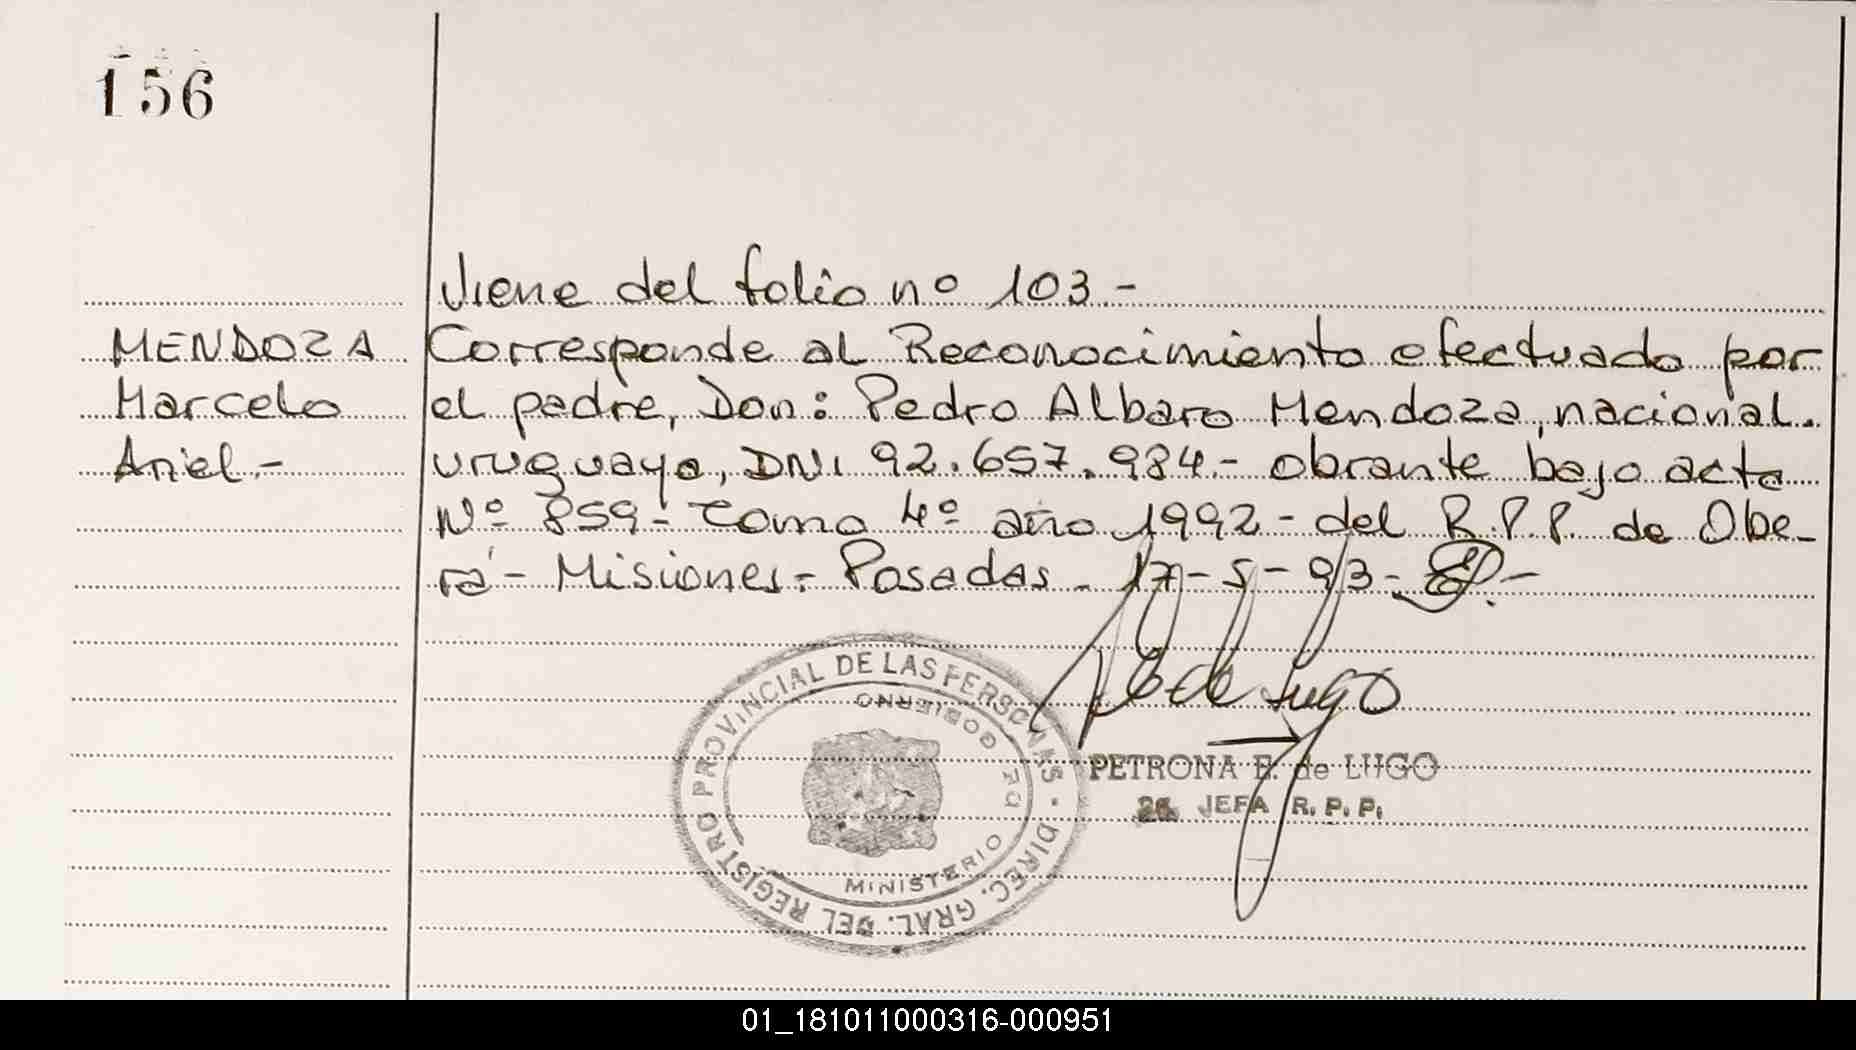 156
Viene del folio nº 103.-
MENDOZA
Marcelo
Ariel.-
Corresponde al Reconocimiento efectuado por
el padre, Don: Pedro Albaro Mendoza, nacional.
uruguaya, DNI 92.657.984.- obrante bajo acta
Nº 859- tomo 4º año 1992- del R.P.P. de Obe-
rá- Misiones.- Posadas- 17-5-93-
de Lugo
PETRONA E. de LUGO
JEFA R. P. P.
DIREC. GRAL. DEL REGISTRO PROVINCIAL DE LAS PERSONAS
MINISTERIO DE GOBIERNO
01_181011000316-000951